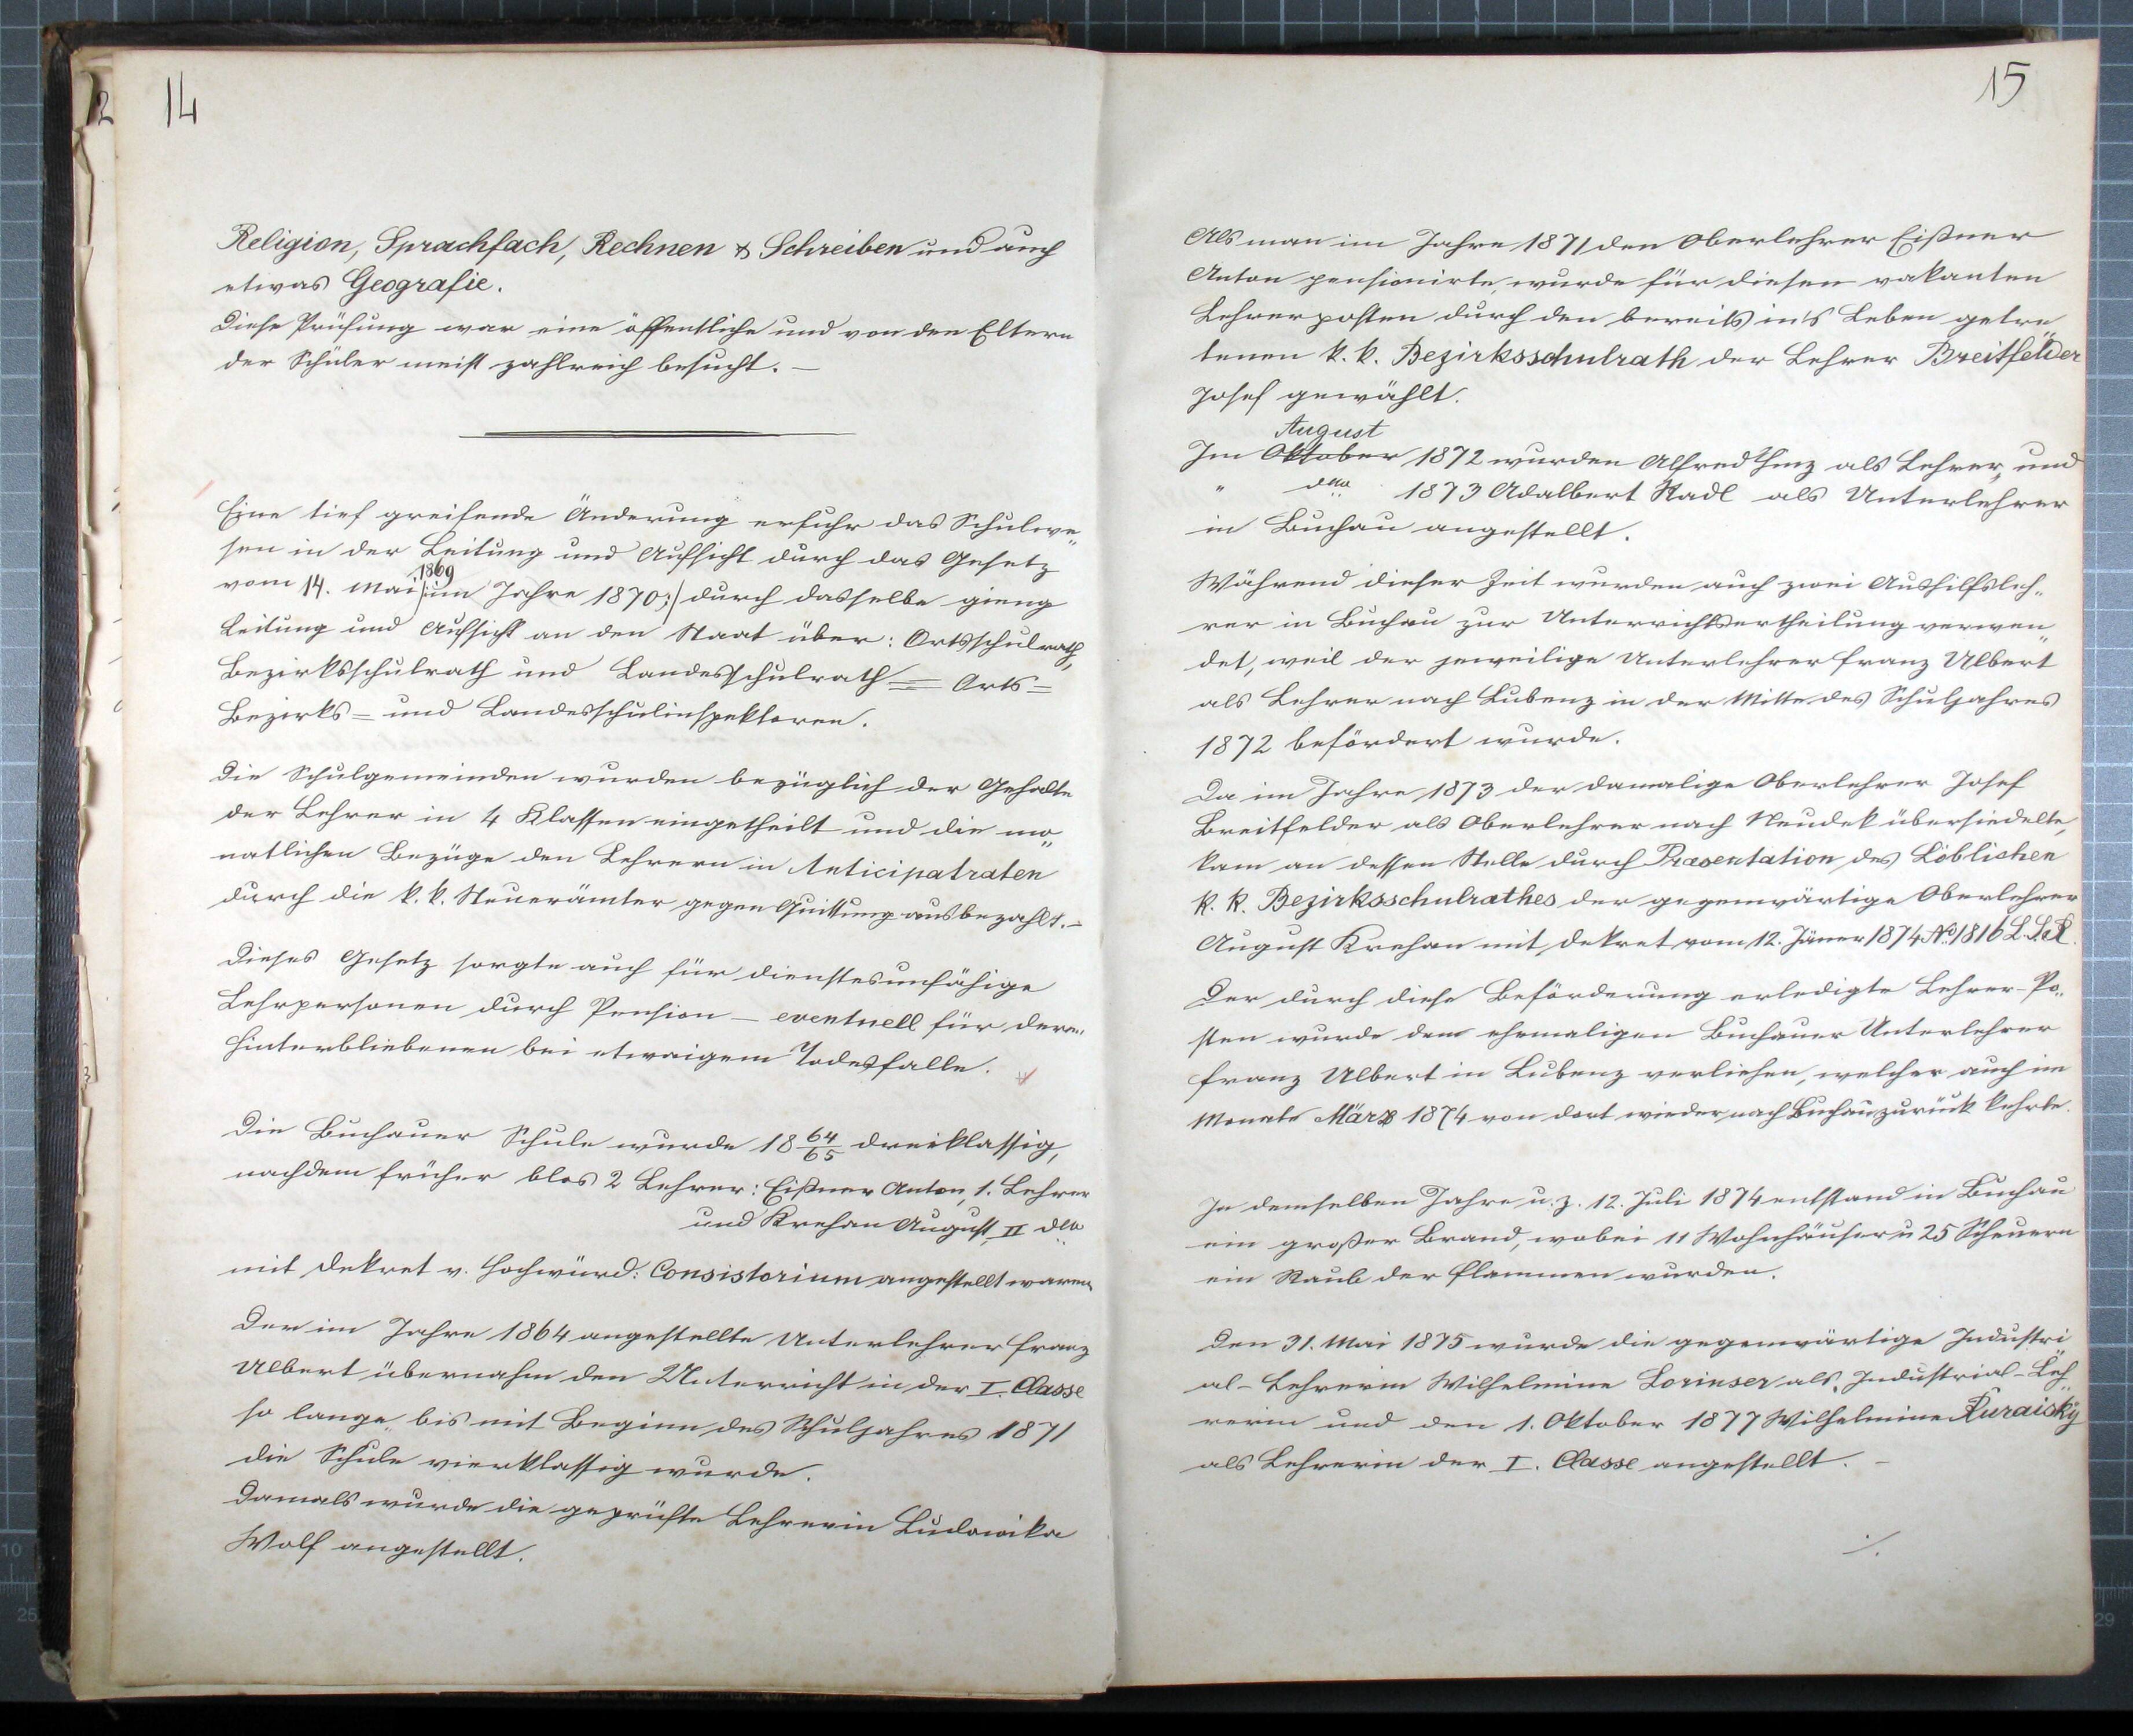 14
Religion, Sprachfach, Rechnen & Schreiben und auch
etwas Geografie.
Diese Prüfung war eine öffentliche und von den Eltern
der Schüler meist zahlreich besucht. –
Eine tief greifende Änderung erfuhr das Schulwe„
sen in der Leitung und Aufsicht durch das Gesetz
1869
vom 14. Mai /: im Jahre 1870 :/ durch dasselbe gieng
Leitung und Aufsicht an den Staat über: Ortsschulrath,
Bezirksschulrath und Landesschulrath = Orts=
Bezirks= und Landesschulinspektoren.
Die Schulgemeinden wurden bezüglich der Gehalte
der Lehrer in 4 Klassen eingetheilt und die mo„
natlichen Bezüge den Lehrern in Anticipatraten
durch die k. k. Steuerämter gegen Quittung ausbezahlt. –
Dieses Gesetz sorgte auch für dienstesunfähige
Lehrpersonen durch Pension – eventuell für deren
Hinterbliebenen bei etwaigem Todesfalle.
Die Buchauer Schule wurde 18 64/65 dreiklassig,
nachdem früher blos 2 Lehrer: Eißner Anton, 1. Lehrer
und Krehan August, II dto
mit Dekret v. Hochwürd: Consistorium angestellt waren.
Der im Jahre 1864 angestellte Unterlehrer Franz
Ulbert übernahm den Unterricht in der I. Classe
so lange, bis mit Beginn des Schuljahres 1871
die Schule vierklassig wurde.
Damals wurde die geprüfte Lehrerin Ludowika
Wolf angestellt.
15
Als man im Jahre 1871 den Oberlehrer Eißner
Anton pensionirte, wurde für diesen vakanten
Lehrerposten durch den bereits in's Leben getre„
tenen k. k. Bezirksschulrath der Lehrer Breitfelder
Josef gewählt.
August
Im Oktober 1872 wurden Alfred Hinz als Lehrer, und
" dtto 1873 Adalbert Stadl als Unterlehrer
in Buchau angestellt.
Während dieser Zeit wurden auch zwei Aushilfsleh„
rer in Buchau zur Unterrichtsertheilung verwen„
det, weil der jeweilige Unterlehrer Franz Ulbert
als Lehrer nach Lubenz in der Mitte des Schuljahres
1872 befördert wurde.
Da im Jahre 1873 der damalige Oberlehrer Josef
Breitfelder als Oberlehrer nach Neudek übersiedelte,
kam an dessen Stelle durch Praesentation des Löblichen
k. k. Bezirksschulrathes der gegenwärtige Oberlehrer
August Krehan mit Dekret vom 12. Jäner 1874 No. 1816 L. S. R.
Der durch diese Beförderung erledigte Lehrer-Po„
sten wurde dem ehemaligen Buchauer Unterlehrer
Franz Ulbert in Lubenz verliehen, welcher auch im
Monate März 1874 von dort wieder nach Buchau zurück kehrte.
In demselben Jahre u. z. 12. Juli 1874 entstand in Buchau
ein großer Brand, wobei 11 Wohnhäuser u 25 Scheuern
ein Raub der Flammen wurden.
Den 31. Mai 1875 wurde die gegenwärtige Industri
al-Lehrerin Wilhelmine Lorinser als Industrial-Leh„
rerin und den 1. Oktober 1877 Wilhelmine Kuraisky
als Lehrerin der I. Classe angestellt. –
./.